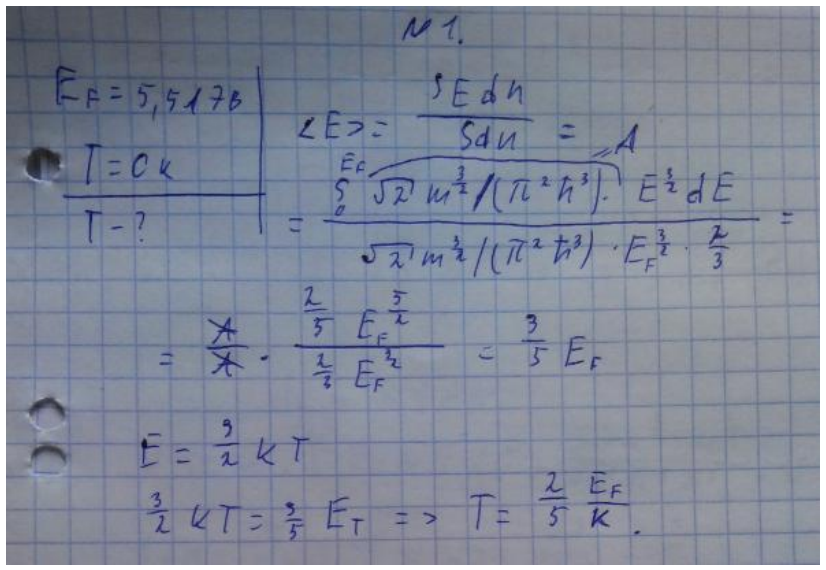 № 1.
E_F = 5,51 эВ
T = 0 К
T - ?
<E> = ∫E dn / ∫dn =
= ∫₀^{E_F} √2 m^{3/2} / (π² ħ³) · E^{3/2} dE / √2 m^{3/2} / (π² ħ³) · E_F^{3/2} · 2/3 =
= A
= A/A · (2/5 E_F^{5/2}) / (2/3 E_F^{3/2}) = 3/5 E_F
E = 3/2 k T
3/2 k T = 3/5 E_T => T = 2/5 E_F/K.